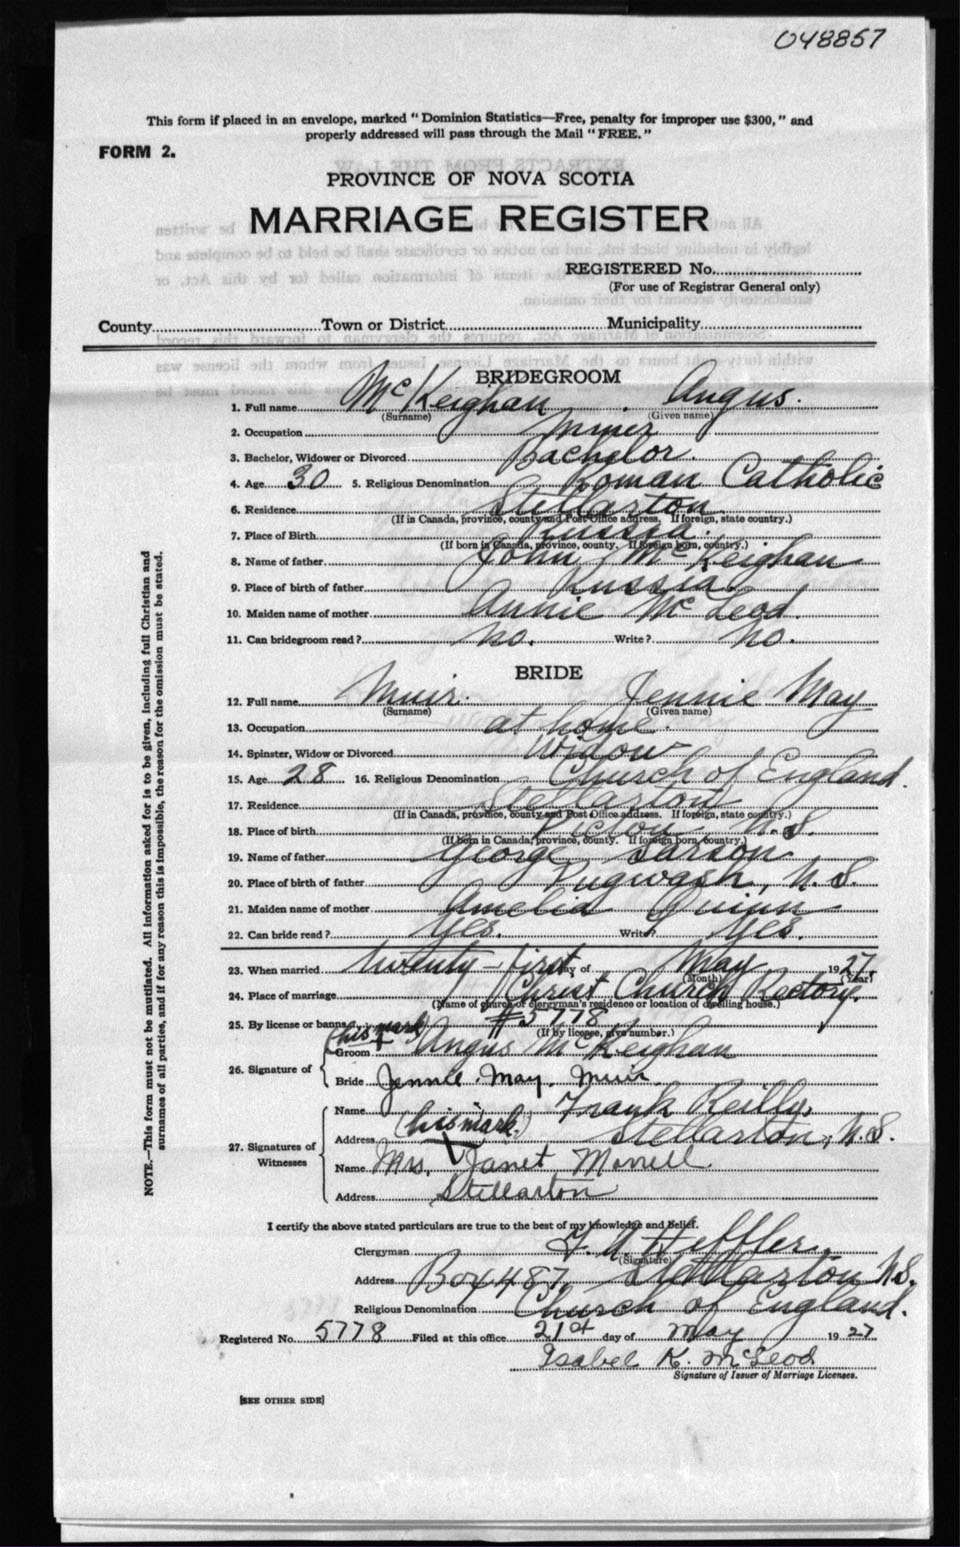 048857
This form if placed in an envelope, marked "Dominion Statistics—Free, penalty for improper use $300," and
properly addressed will pass through the Mail "FREE."
FORM 2.
PROVINCE OF NOVA SCOTIA
MARRIAGE REGISTER
REGISTERED No.
(For use of Registrar General only)
County Town or District Municipality
BRIDEGROOM
1. Full name McKeighan Angus.
(Surname) (Given name)
2. Occupation Miner
3. Bachelor, Widower or Divorced Bachelor.
4. Age 30 5. Religious Denomination Roman Catholic
6. Residence Stellarton
(If in Canada, province, county and Post Office address. If foreign, state country.)
7. Place of Birth Russia.
(If born in Canada, province, county. If foreign born, country.)
8. Name of father John McKeighan
9. Place of birth of father Russia.
10. Maiden name of mother Annie McLeod.
11. Can bridegroom read? No. Write? No.
BRIDE
12. Full name Muir. Jennie May
(Surname) (Given name)
13. Occupation at home.
14. Spinster, Widow or Divorced Widow
15. Age 28 16. Religious Denomination Church of England.
17. Residence Stellarton
(If in Canada, province, county and Post Office address. If foreign, state country.)
18. Place of birth Pictou N.S.
(If born in Canada, province, county. If foreign born, country.)
19. Name of father George Sarson
20. Place of birth of father Pugwash, N.S.
21. Maiden name of mother Amelia Quinn
22. Can bride read? Yes. Write? Yes.
23. When married twenty-first day of May 1927.
(Month) (Year)
24. Place of marriage Christ Church Rectory.
(Name of church or clergyman's residence or location of dwelling house.)
25. By license or banns #5778
(If by license, give number.)
(his mark)
26. Signature of Groom Angus McKeighan
Bride Jennie May Muir
27. Signatures of Witnesses
Name Frank Reilly,
(his mark.)
Address Stellarton, N.S.
Name Mrs. Janet Morrell
Address Stellarton
I certify the above stated particulars are true to the best of my knowledge and belief.
Clergyman Heffler.
(Signature)
Address Box 487, Stellarton N.S.
Religious Denomination Church of England.
Registered No. 5778 Filed at this office 21st day of May 1927
Isabel K. McLeod
Signature of Issuer of Marriage Licenses.
[SEE OTHER SIDE]
NOTE.—This form must not be mutilated. All information asked for is to be given, including full Christian and
surnames of all parties, and if for any reason this is impossible, the reason for the omission must be stated.